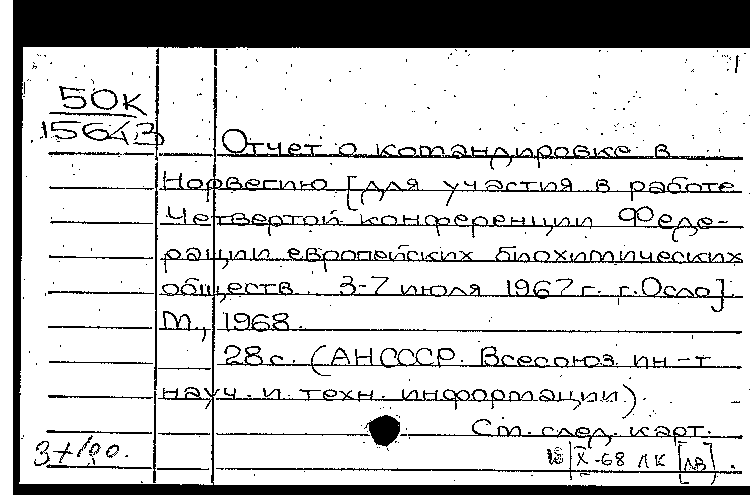 50К
Отчет о командировке в
Норвегию [для участия в работе
Четвертой конференции Феде-
рации европейских биохимических
обществ. 3-7 июля 1967 г. г. Осло]
М., 1968.
28 с. (АН СССР. Всесоюз ин-т
науч. и техн. информации).
См. след. карт.
X-68 ЛК [ЛВ]